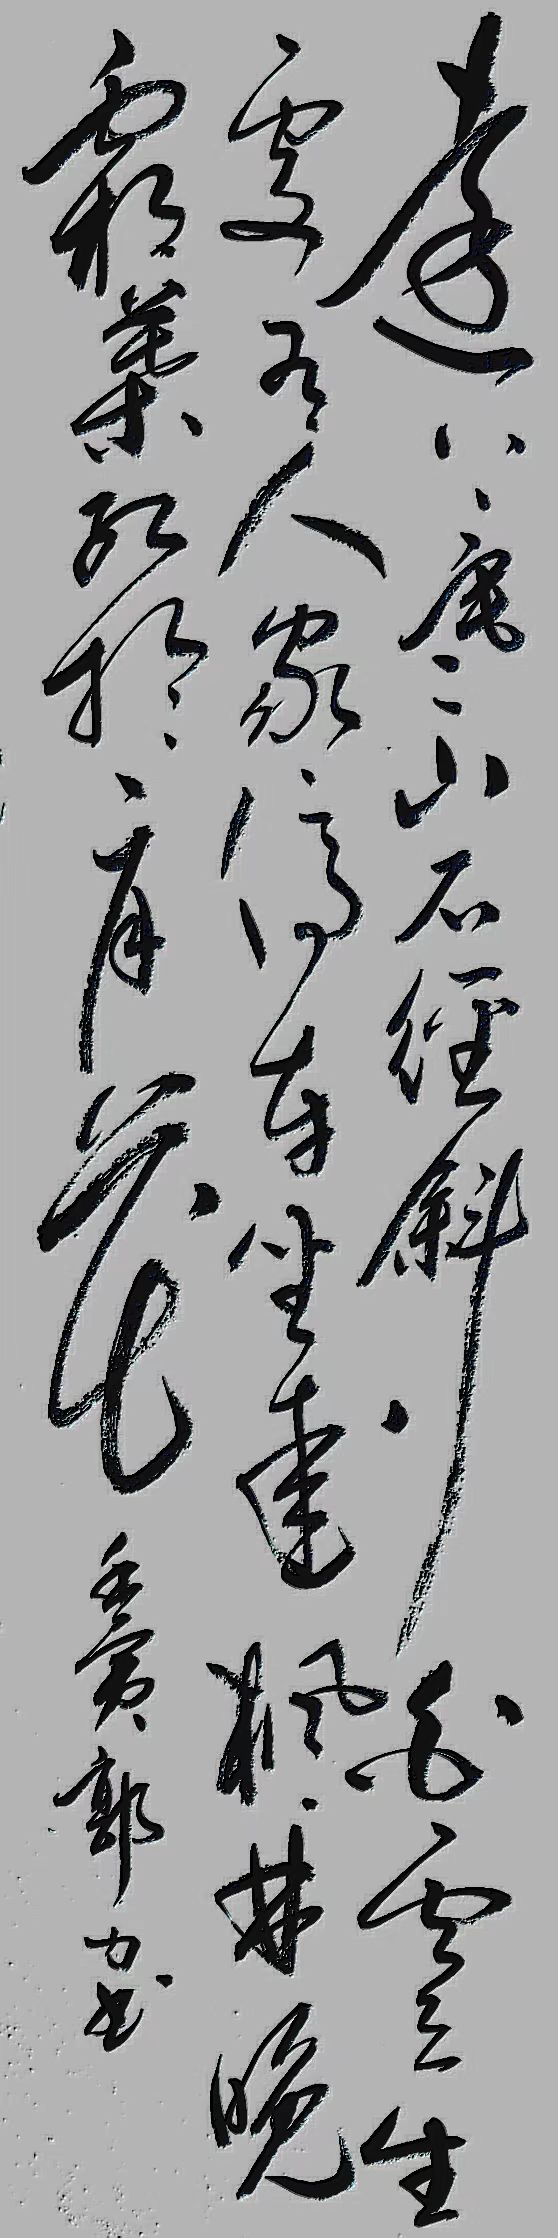 遠上寒山石徑斜白雲生
處有人家停車坐愛楓林晚
霜葉紅於二月花 壬寅郭力書